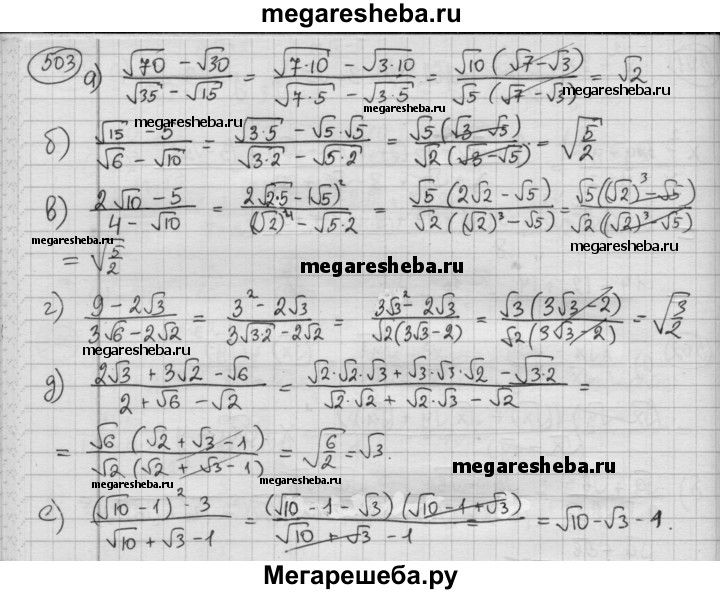 megaresheba.ru
503 а) (√70 − √30)/(√35 − √15) = (√(7·10) − √(3·10))/(√(7·5) − √(3·5)) = √10(√7−√3)/(√5(√7−√3)) = √2
megaresheba.ru megaresheba.ru
б) (√15 − 5)/(√6 − √10) = (√(3·5) − √5·√5)/(√(3·2) − √(5·2)) = √5(√3−√5)/(√2(√3−√5)) = √(5/2)
в) (2√10 − 5)/(4 − √10) = (2√(2·5) − (√5)²)/((√2)⁴ − √(5·2)) = √5(2√2 − √5)/(√2((√2)³ − √5)) = √5((√2)³ − √5)/(√2((√2)³ − √5))
megaresheba.ru megaresheba.ru
= √(5/2) megaresheba.ru
г) (9 − 2√3)/(3√6 − 2√2) = (3² − 2√3)/(3√(3·2) − 2√2) = (3√3² − 2√3)/(√2(3√3 − 2)) = √3(3√3 − 2)/(√2(3√3 − 2)) = √(3/2)
megaresheba.ru
д) (2√3 + 3√2 − √6)/(2 + √6 − √2) = (√2·√2·√3 + √3·√3·√2 − √(3·2))/(√2·√2 + √2·√3 − √2) =
= √6(√2 + √3 − 1)/(√2(√2 + √3 − 1)) = √(6/2) = √3.
megaresheba.ru megaresheba.ru
е) ((√10 − 1)² − 3)/(√10 + √3 − 1) = (√10 − 1 − √3)(√10 − 1 + √3)/(√10 + √3 − 1) = √10 − √3 − 1.
Мегарешеба.ру